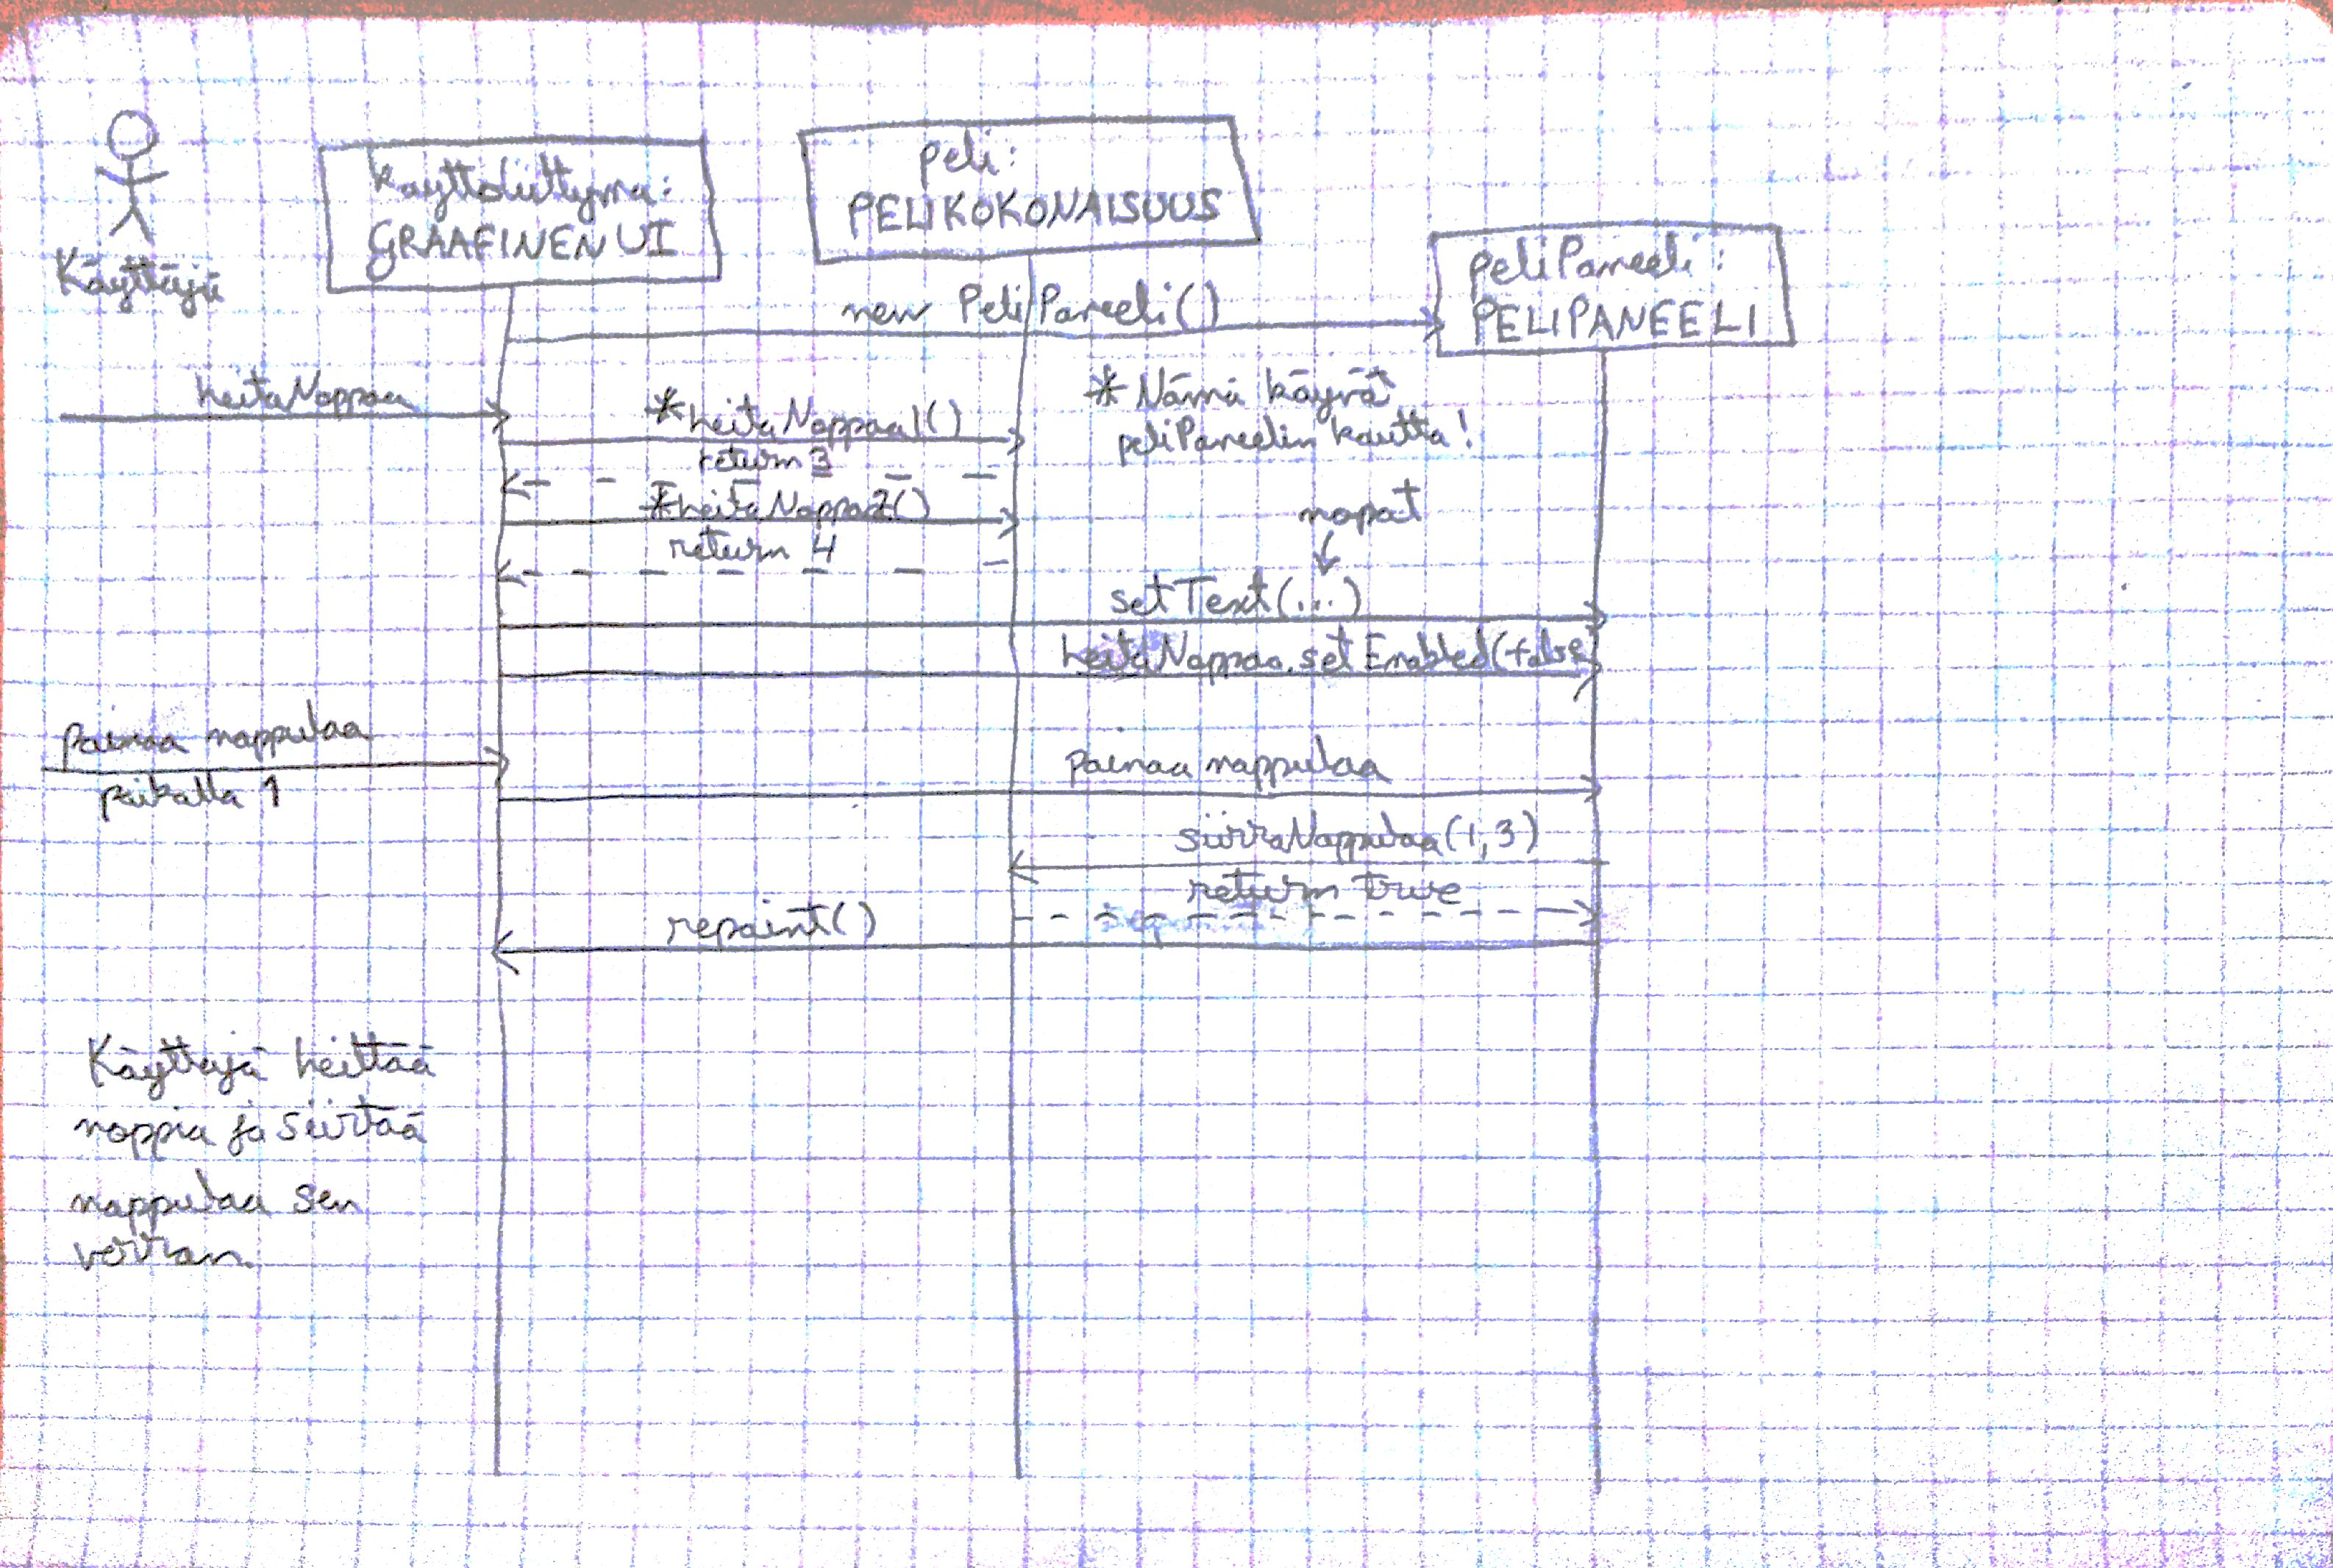 Käyttäjä
käyttöliittymä:
GRAAFINEN UI
peli:
PELIKOKONAISUUS
peliPaneeli:
PELIPANEELI
new PeliPaneeli()
heitaNoppaa
*heitaNoppaa1()
return 3
*heitaNoppaa2()
return 4
* Nämä käyvät
peliPaneelin kautta!
nopat
setText(...)
heitaNoppaa.setEnabled(false)
painaa nappulaa
paikalla 1
painaa nappulaa
siirraNappulaa(1,3)
return true
repaint()
Käyttäjä heittää
noppia ja siirtää
nappulaa sen
verran.